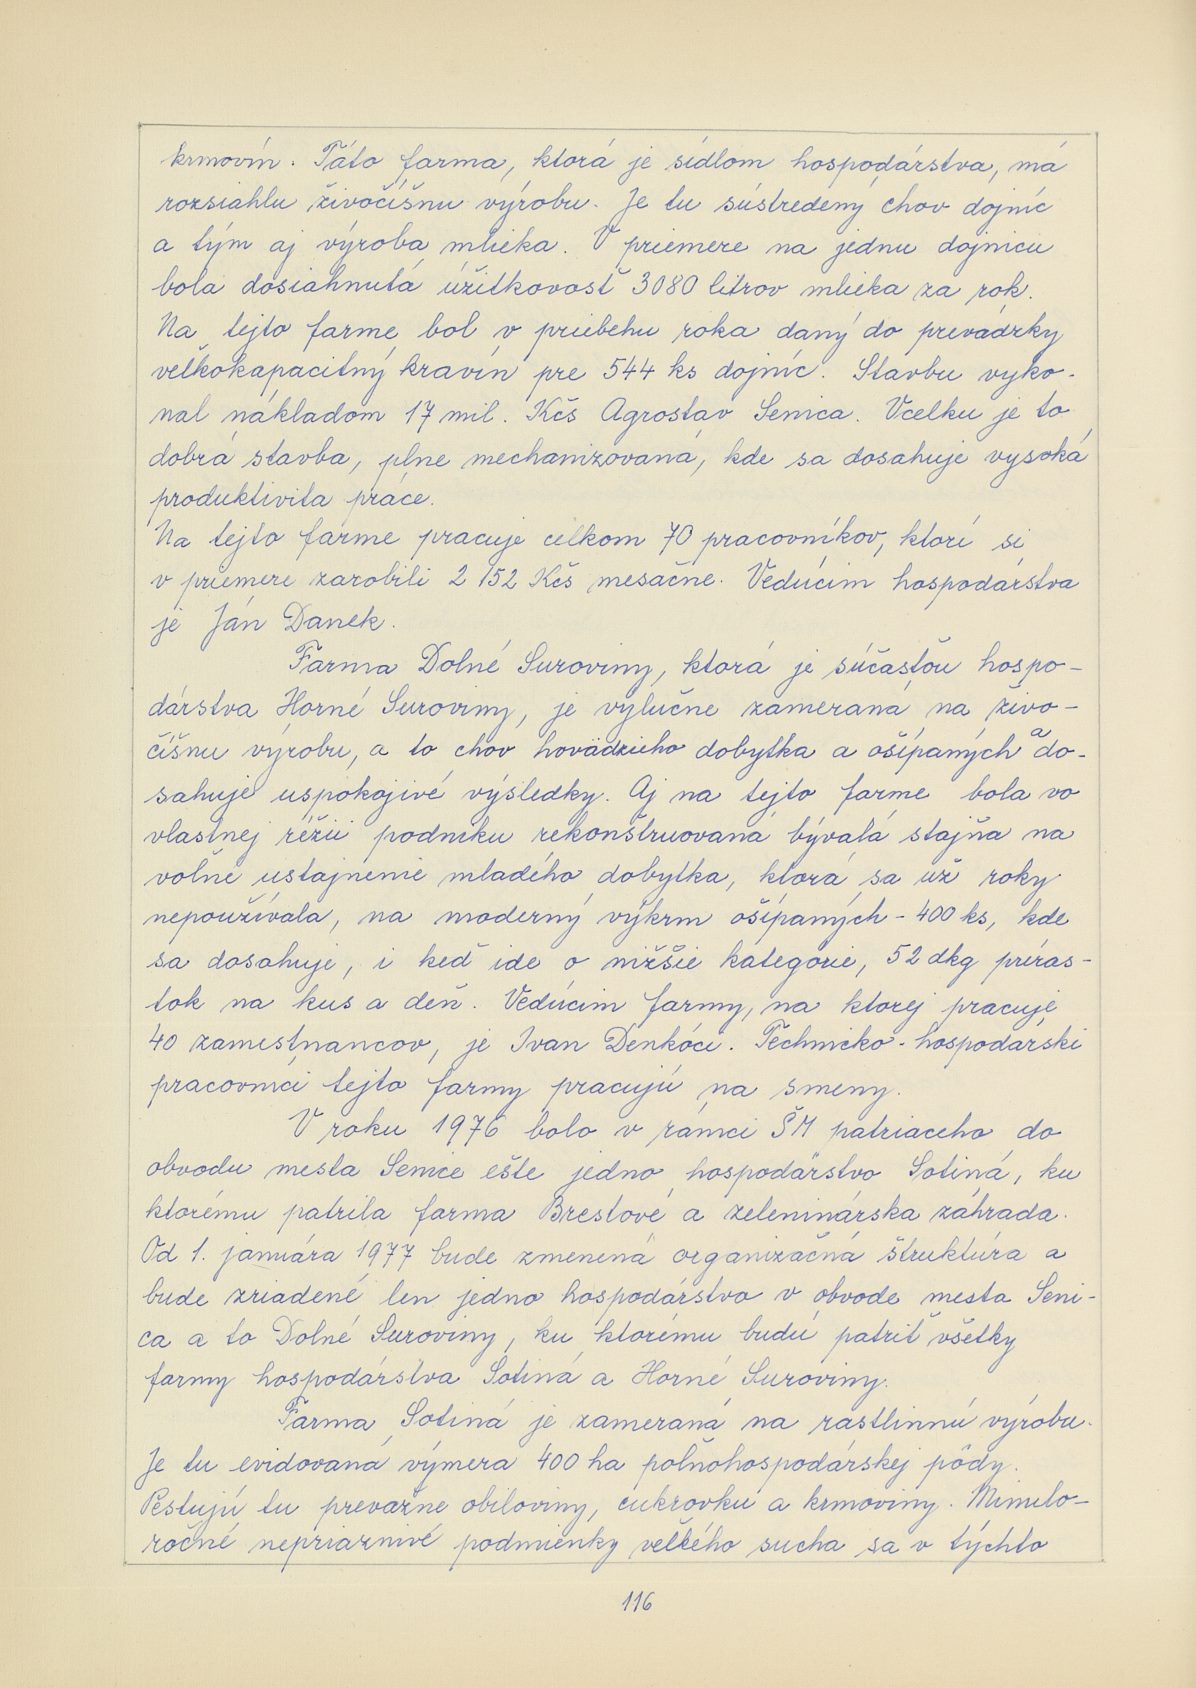 krmovín. Táto farma, ktorá je sídlom hospodárstva, má
rozsiahlu živočíšnu výrobu. Je tu sústredený chov dojníc
a tým aj výroba mlieka. V priemere na jednu dojnicu
bola dosiahnutá úžitkovosť 3080 litrov mlieka za rok.
Na tejto farme bol v priebehu roka daný do prevádzky
veľkokapacitný kravín pre 544 ks dojníc. Stavbu vyko-
nal nákladom 17 mil. Kčs Agrostav Senica. Vcelku je to
dobrá stavba, plne mechanizovaná, kde sa dosahuje vysoká
produktivita práce.
Na tejto farme pracuje celkom 70 pracovníkov, ktorí si
v priemere zarobili 2 152 Kčs mesačne. Vedúcim hospodárstva
je Ján Danek.
Farma Dolné Suroviny, ktorá je súčasťou hospo-
dárstva Horné Suroviny, je výlučne zameraná na živo-
číšnu výrobu, a to chov hovädzieho dobytka a ošípaných a do-
sahuje uspokojivé výsledky. Aj na tejto farme bola vo
vlastnej réžii podniku rekonštruovaná bývalá stajňa na
voľné ustajnenie mladého dobytka, ktorá sa už roky
nepoužívala, na moderný výkrm ošípaných - 400 ks, kde
sa dosahuje, i keď ide o nižšie kategórie, 52 dkg príras-
tok na kus a deň. Vedúcim farmy, na ktorej pracuje
40 zamestnancov, je Ivan Denkóci. Technicko-hospodárski
pracovníci tejto farmy pracujú na smeny.
V roku 1976 bolo v rámci ŠM patriaceho do
obvodu mesta Senice ešte jedno hospodárstvo Sotiná, ku
ktorému patrila farma Brestové a zeleninárska záhrada.
Od 1. januára 1977 bude zmenená organizačná štruktúra a
bude zriadené len jedno hospodárstvo v obvode mesta Seni-
ca a to Dolné Suroviny, ku ktorému budú patriť všetky
farmy hospodárstva Sotiná a Horné Suroviny.
Farma Sotiná je zameraná na rastlinnú výrobu.
Je tu evidovaná výmera 400 ha poľnohospodárskej pôdy.
Pestujú tu prevažne obiloviny, cukrovku a krmoviny. Mimulo-
ročné nepriaznivé podmienky veľkého sucha sa v týchto
116